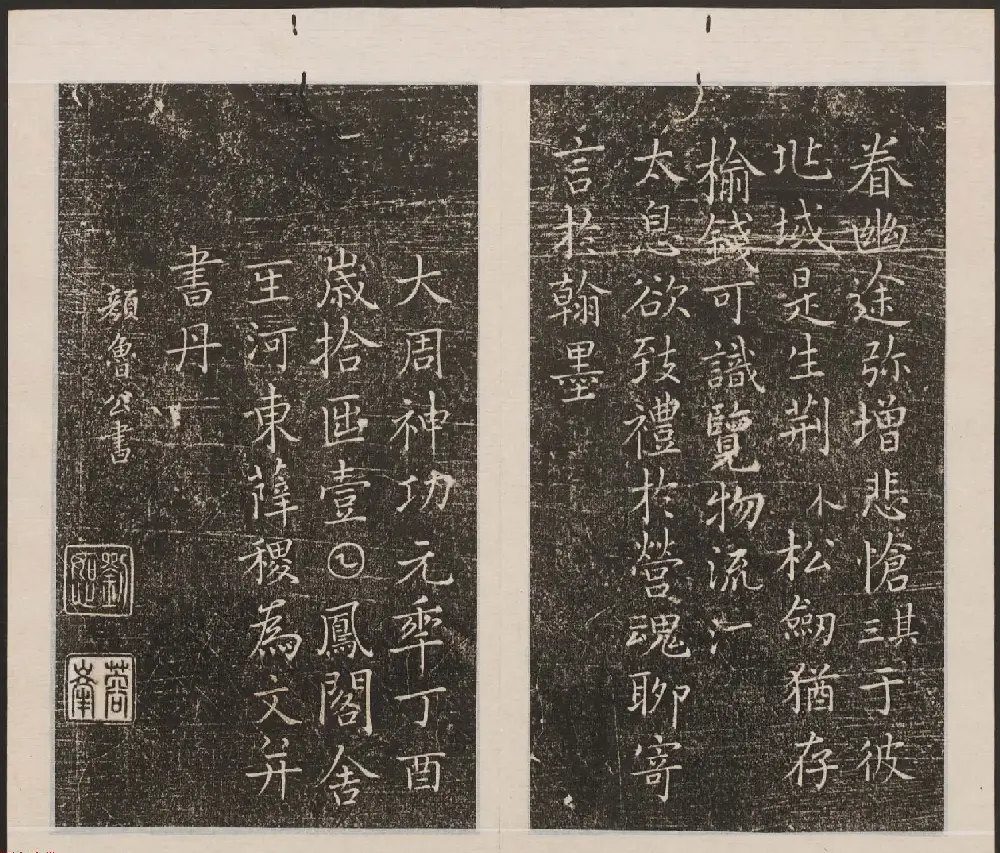 眷幽途弥增悲愴琪于彼
兆域是生荆木松劒猶存
榆錢可識覽物流
太息欲致禮於營魂聊寄
言於翰墨
大周神功元年丁酉
歳拾匝壹㔺鳳閣舍
玍河東薛稷為文并
書丹
顏魯公書
劉
蓉峯